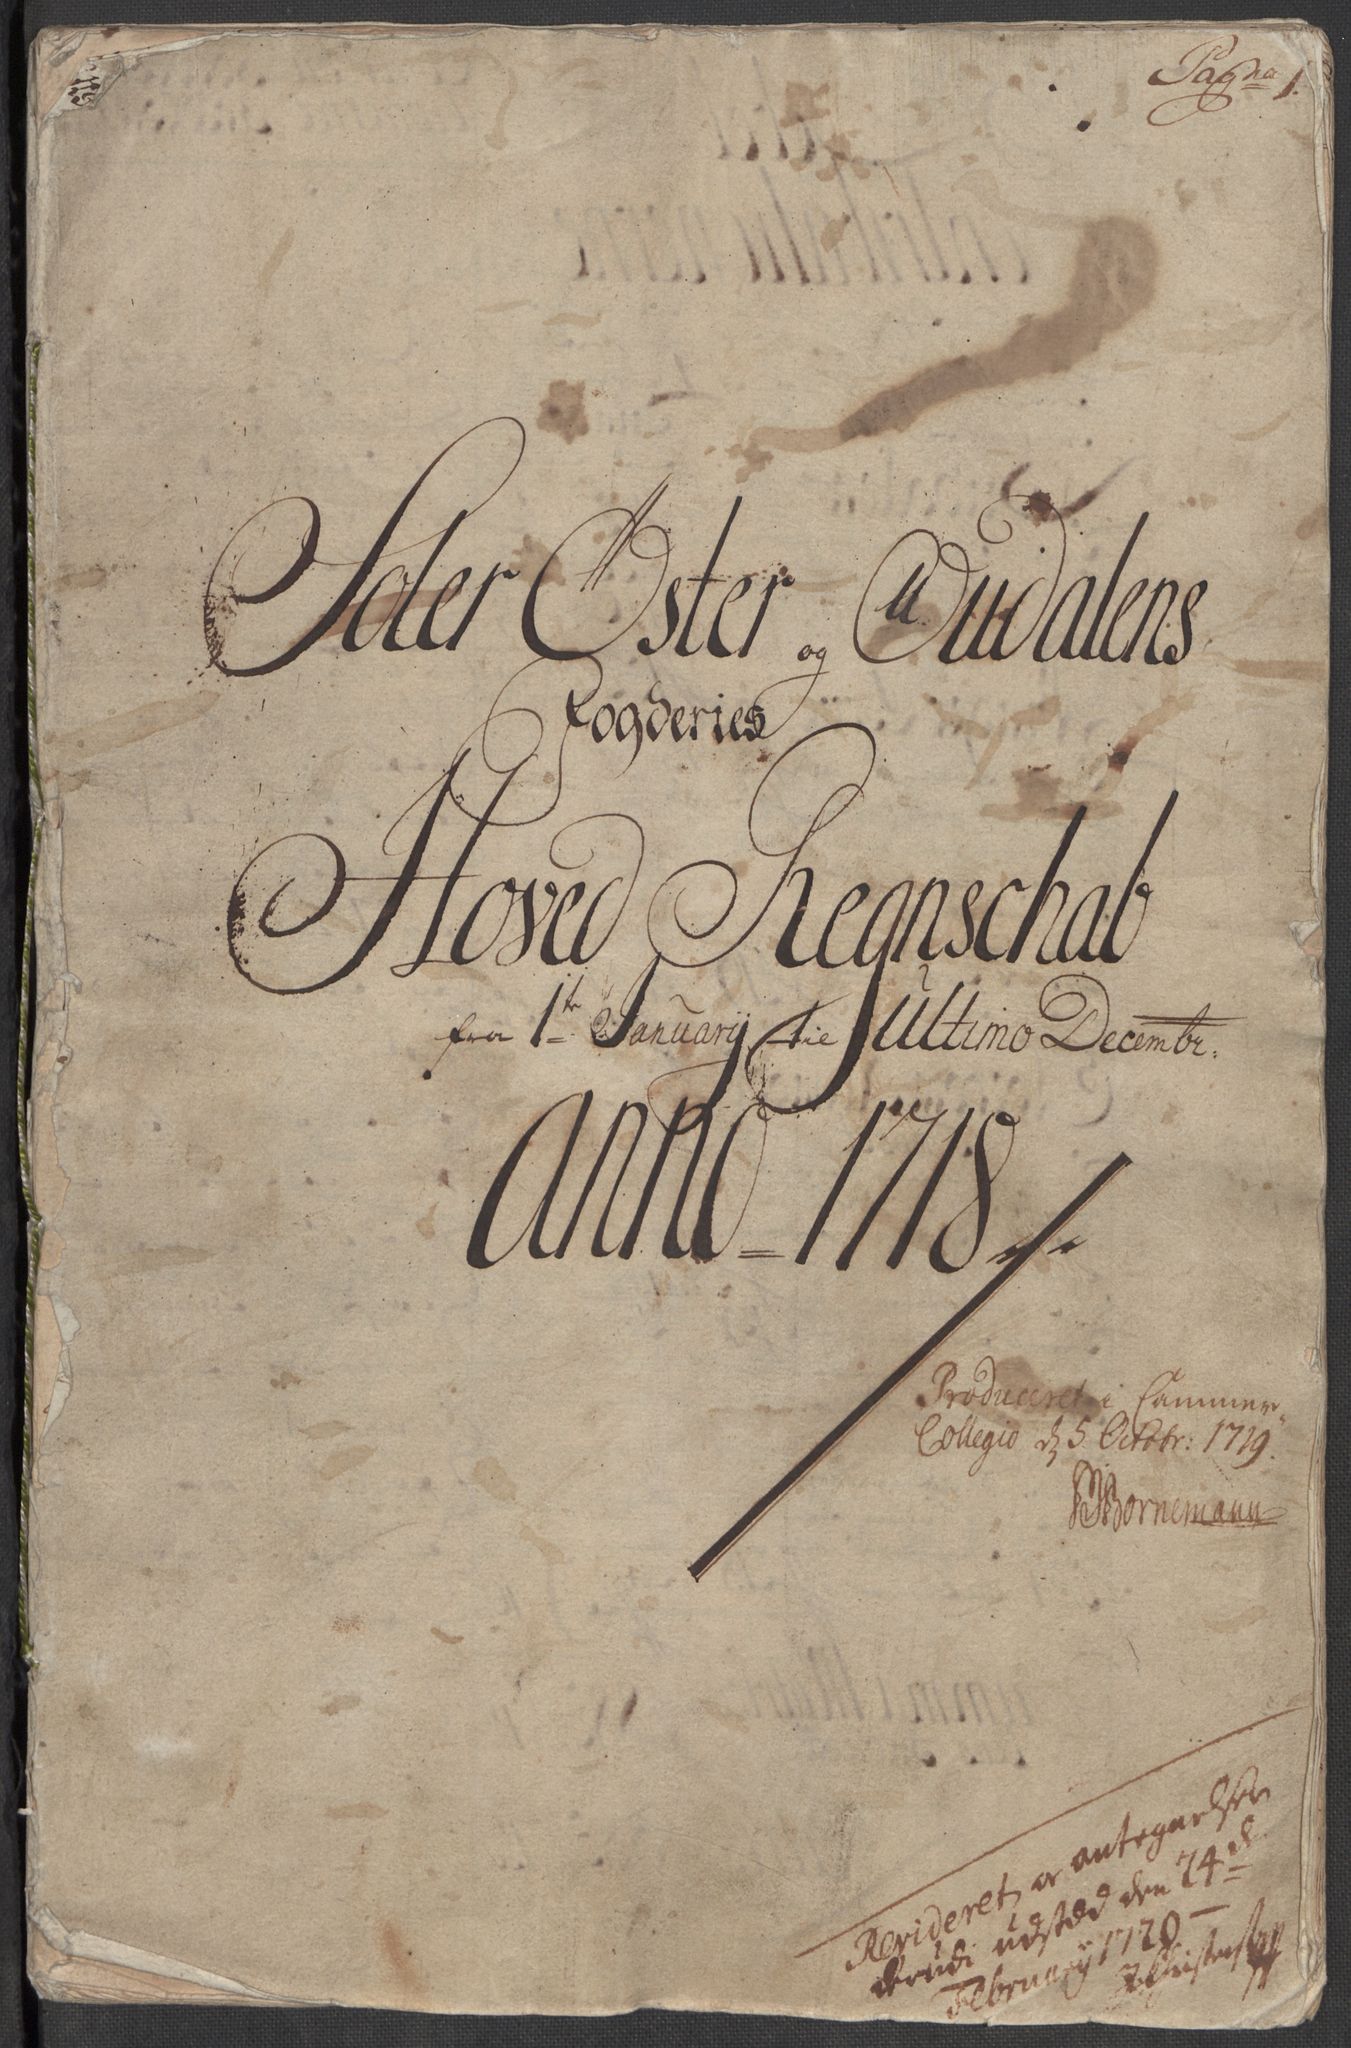 Pagna 1.
Soler Öster og Oudalens
Fogderies
Hoved Regnschab
fra 1te Januarij tie ultimo Decembr:
anno = 1718
Produceret i Cammer
Collegio d 5 Octobr: 1719.
Bornemann
Revideret, og antegnelsen
derudi udstæd den 24de
February 1720